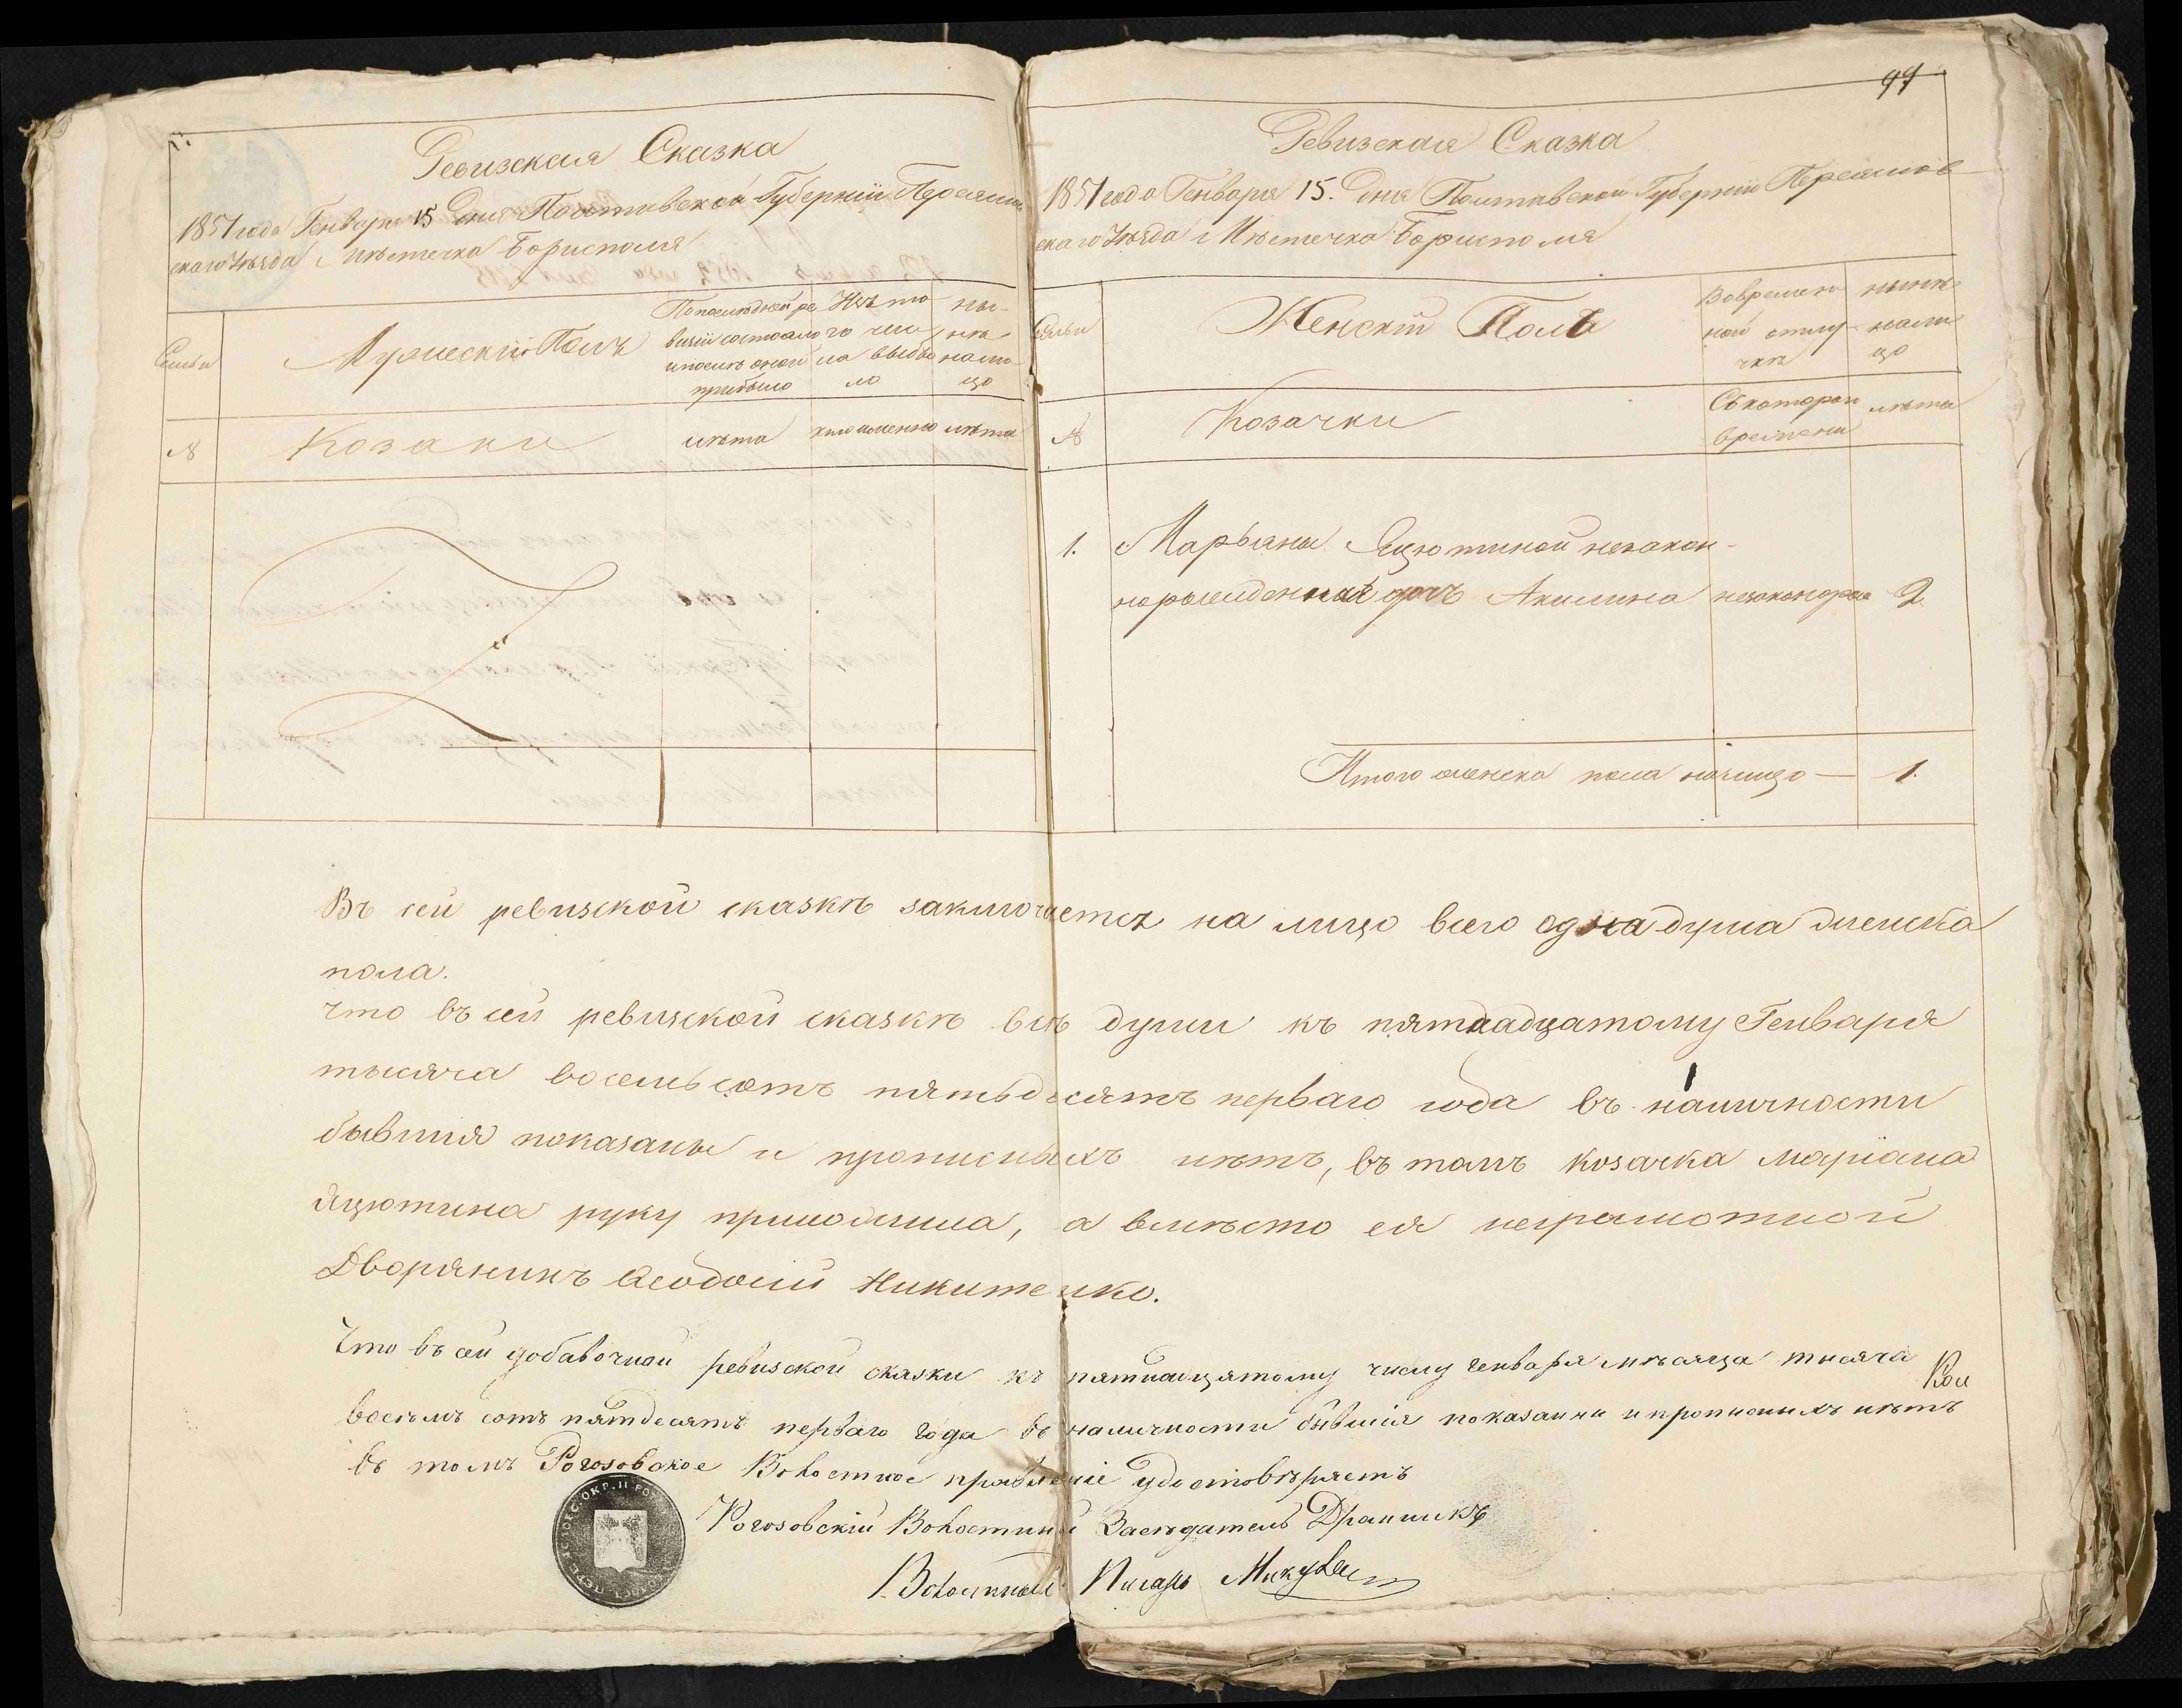 Ревизская Сказка
1851 года Генваря 15 дня Полтавской Губернии Переяслов
скаго Уѣзда Мѣстечка Борисполя
Семьи
Мужескій Полъ
По последней ре
визіи состояло
и послѣ оной
прибыло
Изъ то
го чис
ла выбы
ло
ны-
нѣ
на ли
цо
№
Козаки
лѣта
когда именно
лѣта
99
Ревизская Сказка
1851 года Генваря 15. дня Полтавской Губерніи Переяслов
скаго Уѣзда Мѣстечка Борисполя
Семьи
Женскій Полъ
Во времен
ной отлу-
чкѣ
нынѣ
на ли
цо
№
Козачки
Съ котораго
времени
лѣта
1. Марьяны Яцютиной незакон-
норожденная дочь Акилина незаконорож 2
Итого женска пола налицо — 1.
Въ сей ревизской сказкѣ заключается на лицо всего одна душа женска
пола.
Что въ сей ревизской сказкѣ всѣ души къ пятнадцатому Генваря
тысяча восемьсотъ пятьдесятъ перваго года въ наличности
бывшия показаны и прописныхъ нѣтъ, въ томъ козачка Маріана
Яцютина руку приложила, а вмѣсто ея неграмотной
Дворянинъ Ѳеодосій Никитенко.
Что въ сей добавочной ревизской сказки къ пятнацятому числу генваря мѣсяца тысяча
восемъ сотъ пятдесятъ перваго года въ наличности бывшія показанни и прописныхъ нѣтъ
въ томъ Рогозовское Волостное правленіе удостовѣряетъ
Рогозовскій Волостний Засѣдатель Драпшикъ
Волостный Писарь